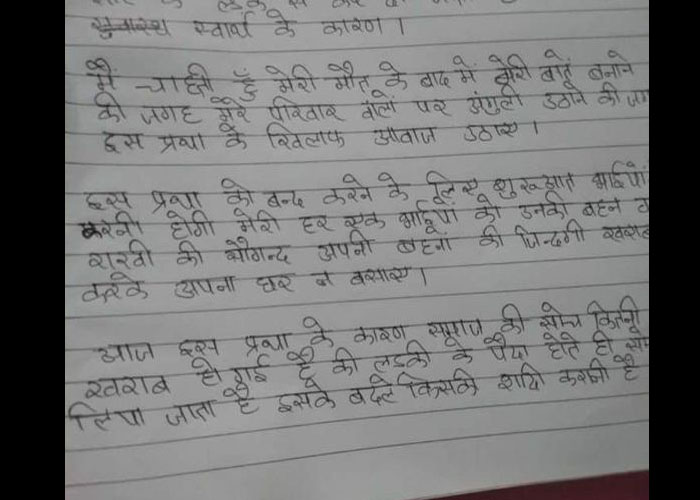 स्वार्थ के कारण ।
मैं चाहती हूँ मेरी मौत के बाद में मेरी बातें बनाने
की जगह मेरे परिवार वालों पर अंगुली उठाने की जग
इस प्रथा के खिलाफ आवाज उठाए ।
इस प्रथा को बन्द करने के लिए शुरूआत भाईयों
करनी होगी मेरी हर एक भाईयों को उनकी बहन
राखी की सौगन्द अपनी बहनों की जिन्दगी खराब
करके अपना घर न बसाए ।
आज इस प्रथा के कारण समाज की सोच कितनी
खराब हो गई है की लडकी के पैदा होते ही सोच
लिया जाता है इसके बदले किसकी शादि करानी है